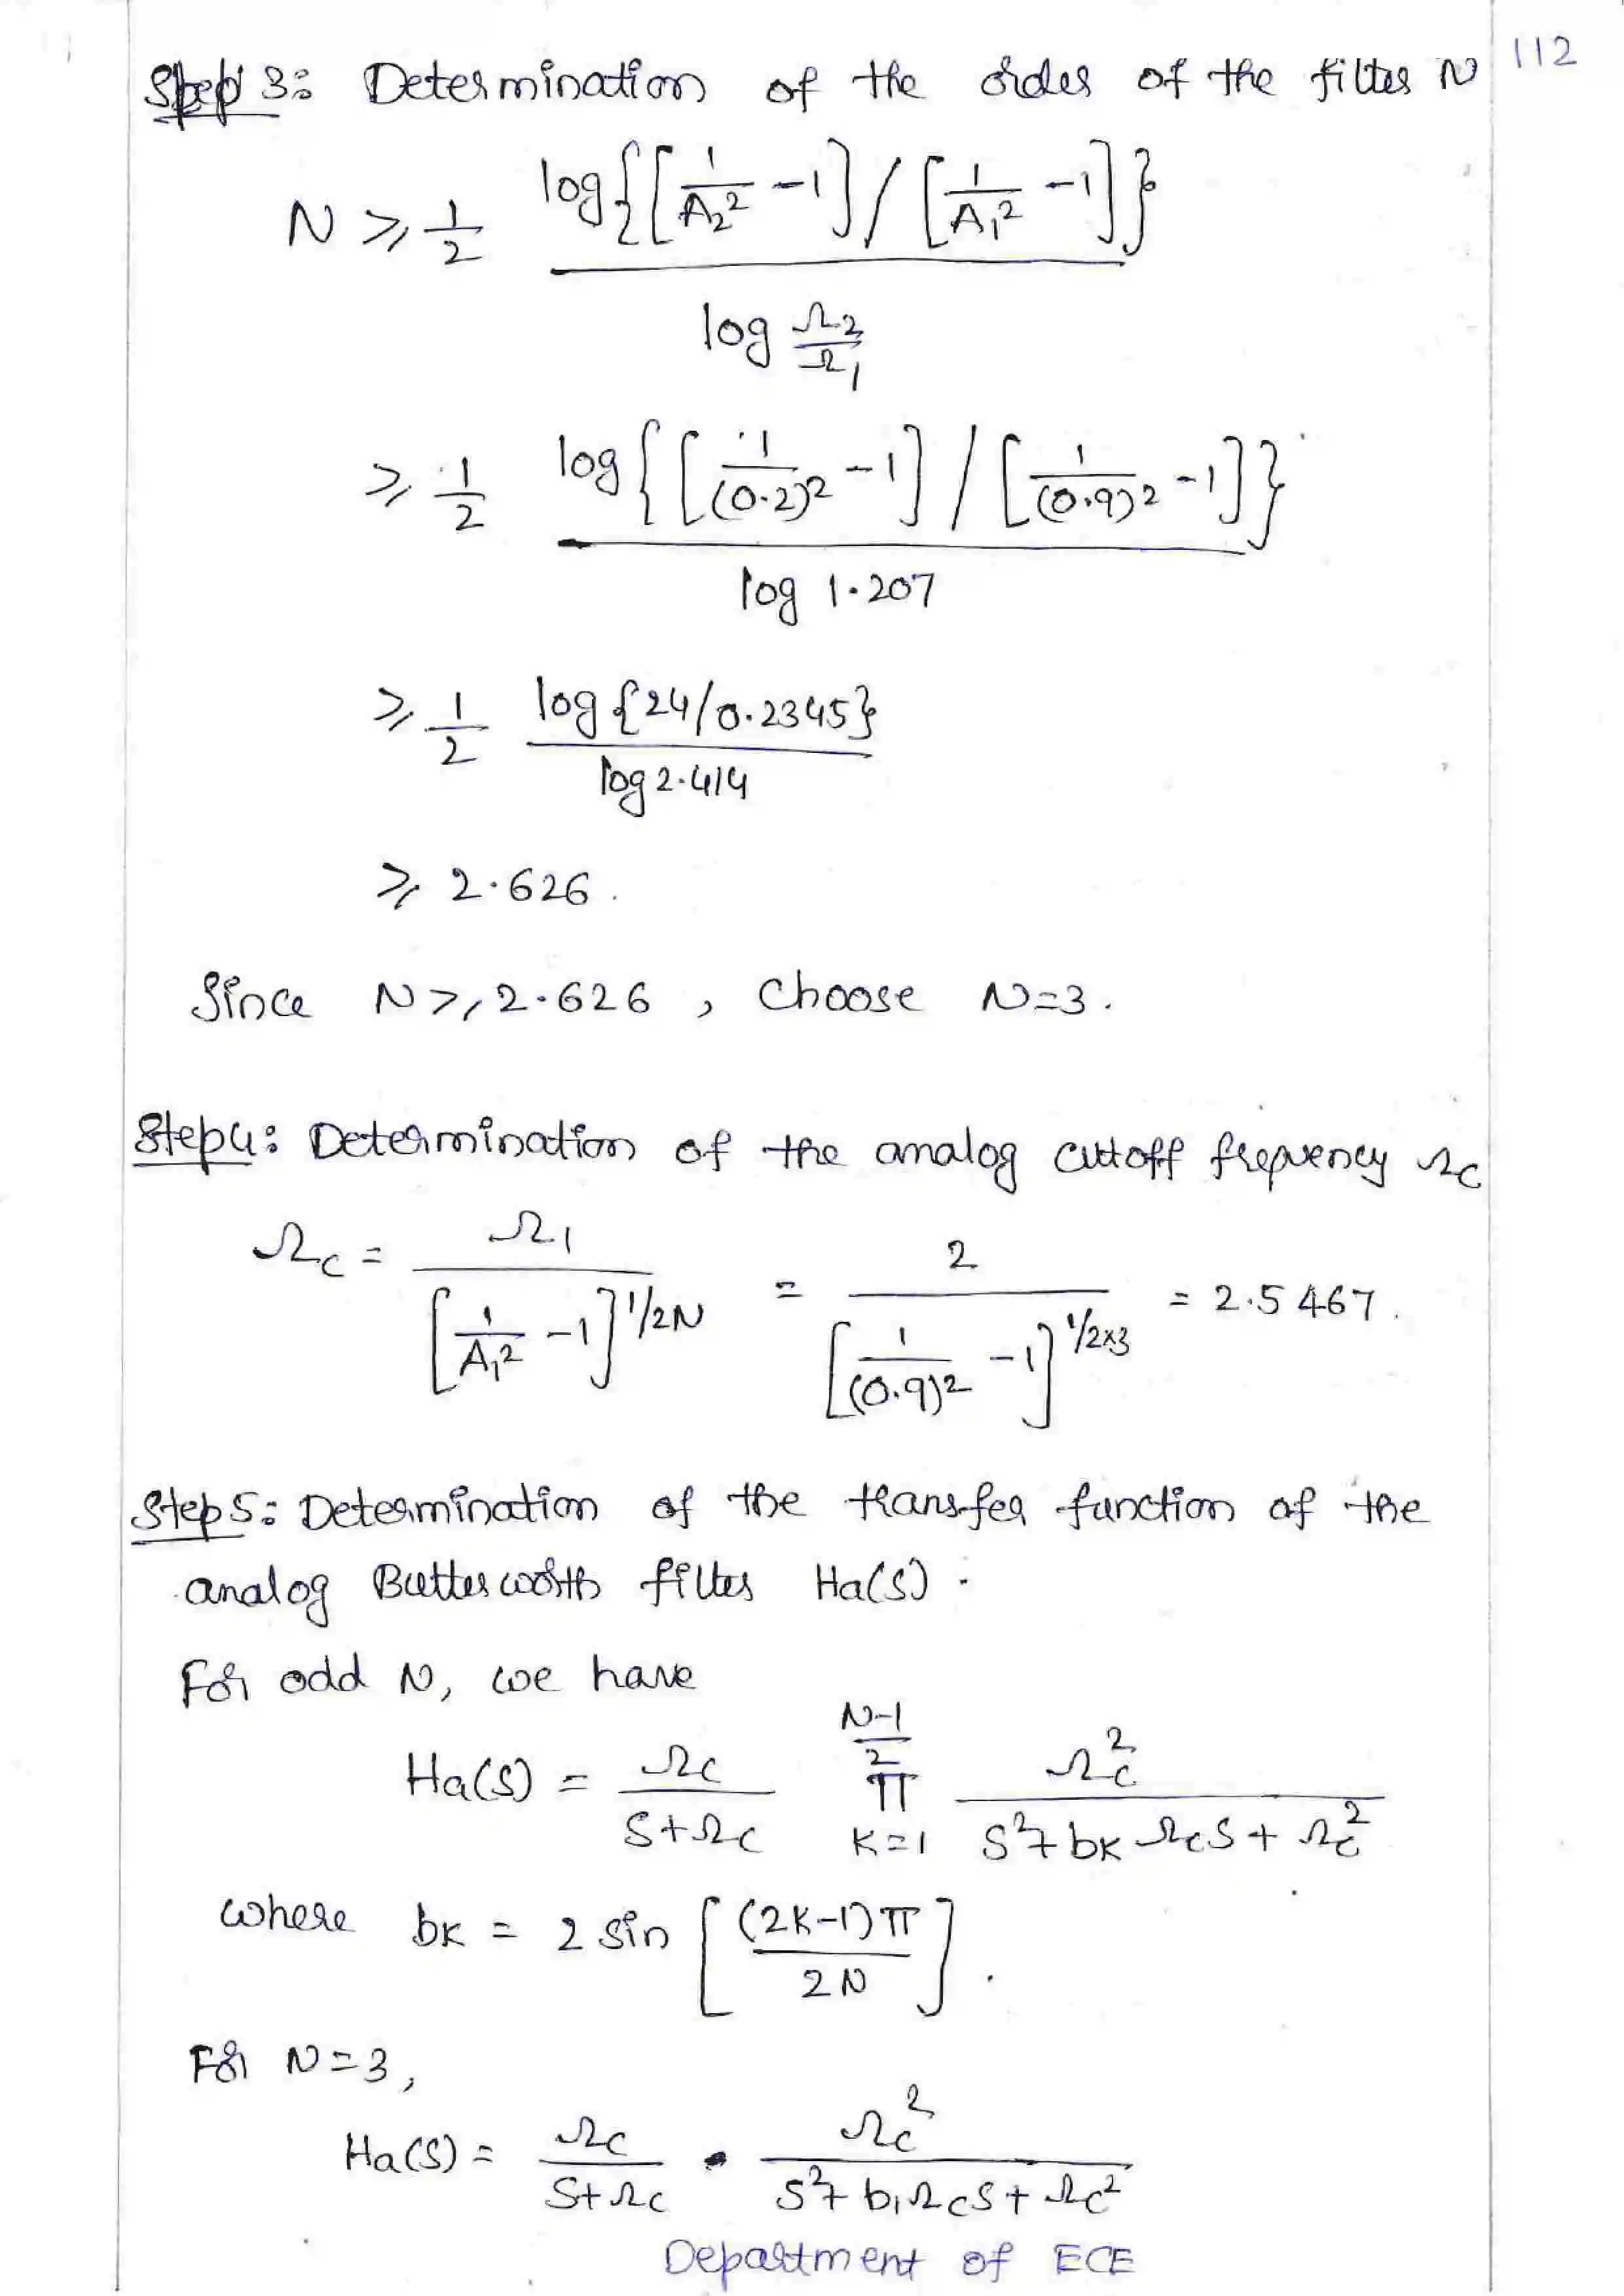 112
Step 3: Determination of the order of the filter N
N ≥ 1/2 log{[1/A₂² -1]/[1/A₁² -1]} / log Ω₂/Ω₁
≥ 1/2 log{[1/(0.2)² -1]/[1/(0.9)² -1]} / log 1.207
≥ 1/2 log{24/0.2345} / log 2.414
≥ 2.626.
Since N ≥ 2.626, choose N=3.
Step4: Determination of the analog cuttoff frequency Ωc
Ωc = Ω₁ / [1/A₁² -1]^1/2N = 2 / [1/(0.9)² -1]^1/2x3 = 2.5467.
Step5: Determination of the transfer function of the
analog Butterworth filter Ha(s).
For odd N, we have
Ha(s) = Ωc/(s+Ωc) π_{k=1}^{N-1/2} Ωc²/(s²+bkΩcs+Ωc²)
where bk = 2 sin [(2k-1)π/2N].
For N=3,
Ha(s) = Ωc/(s+Ωc) · Ωc²/(s²+b₁Ωcs+Ωc²)
Department of ECE